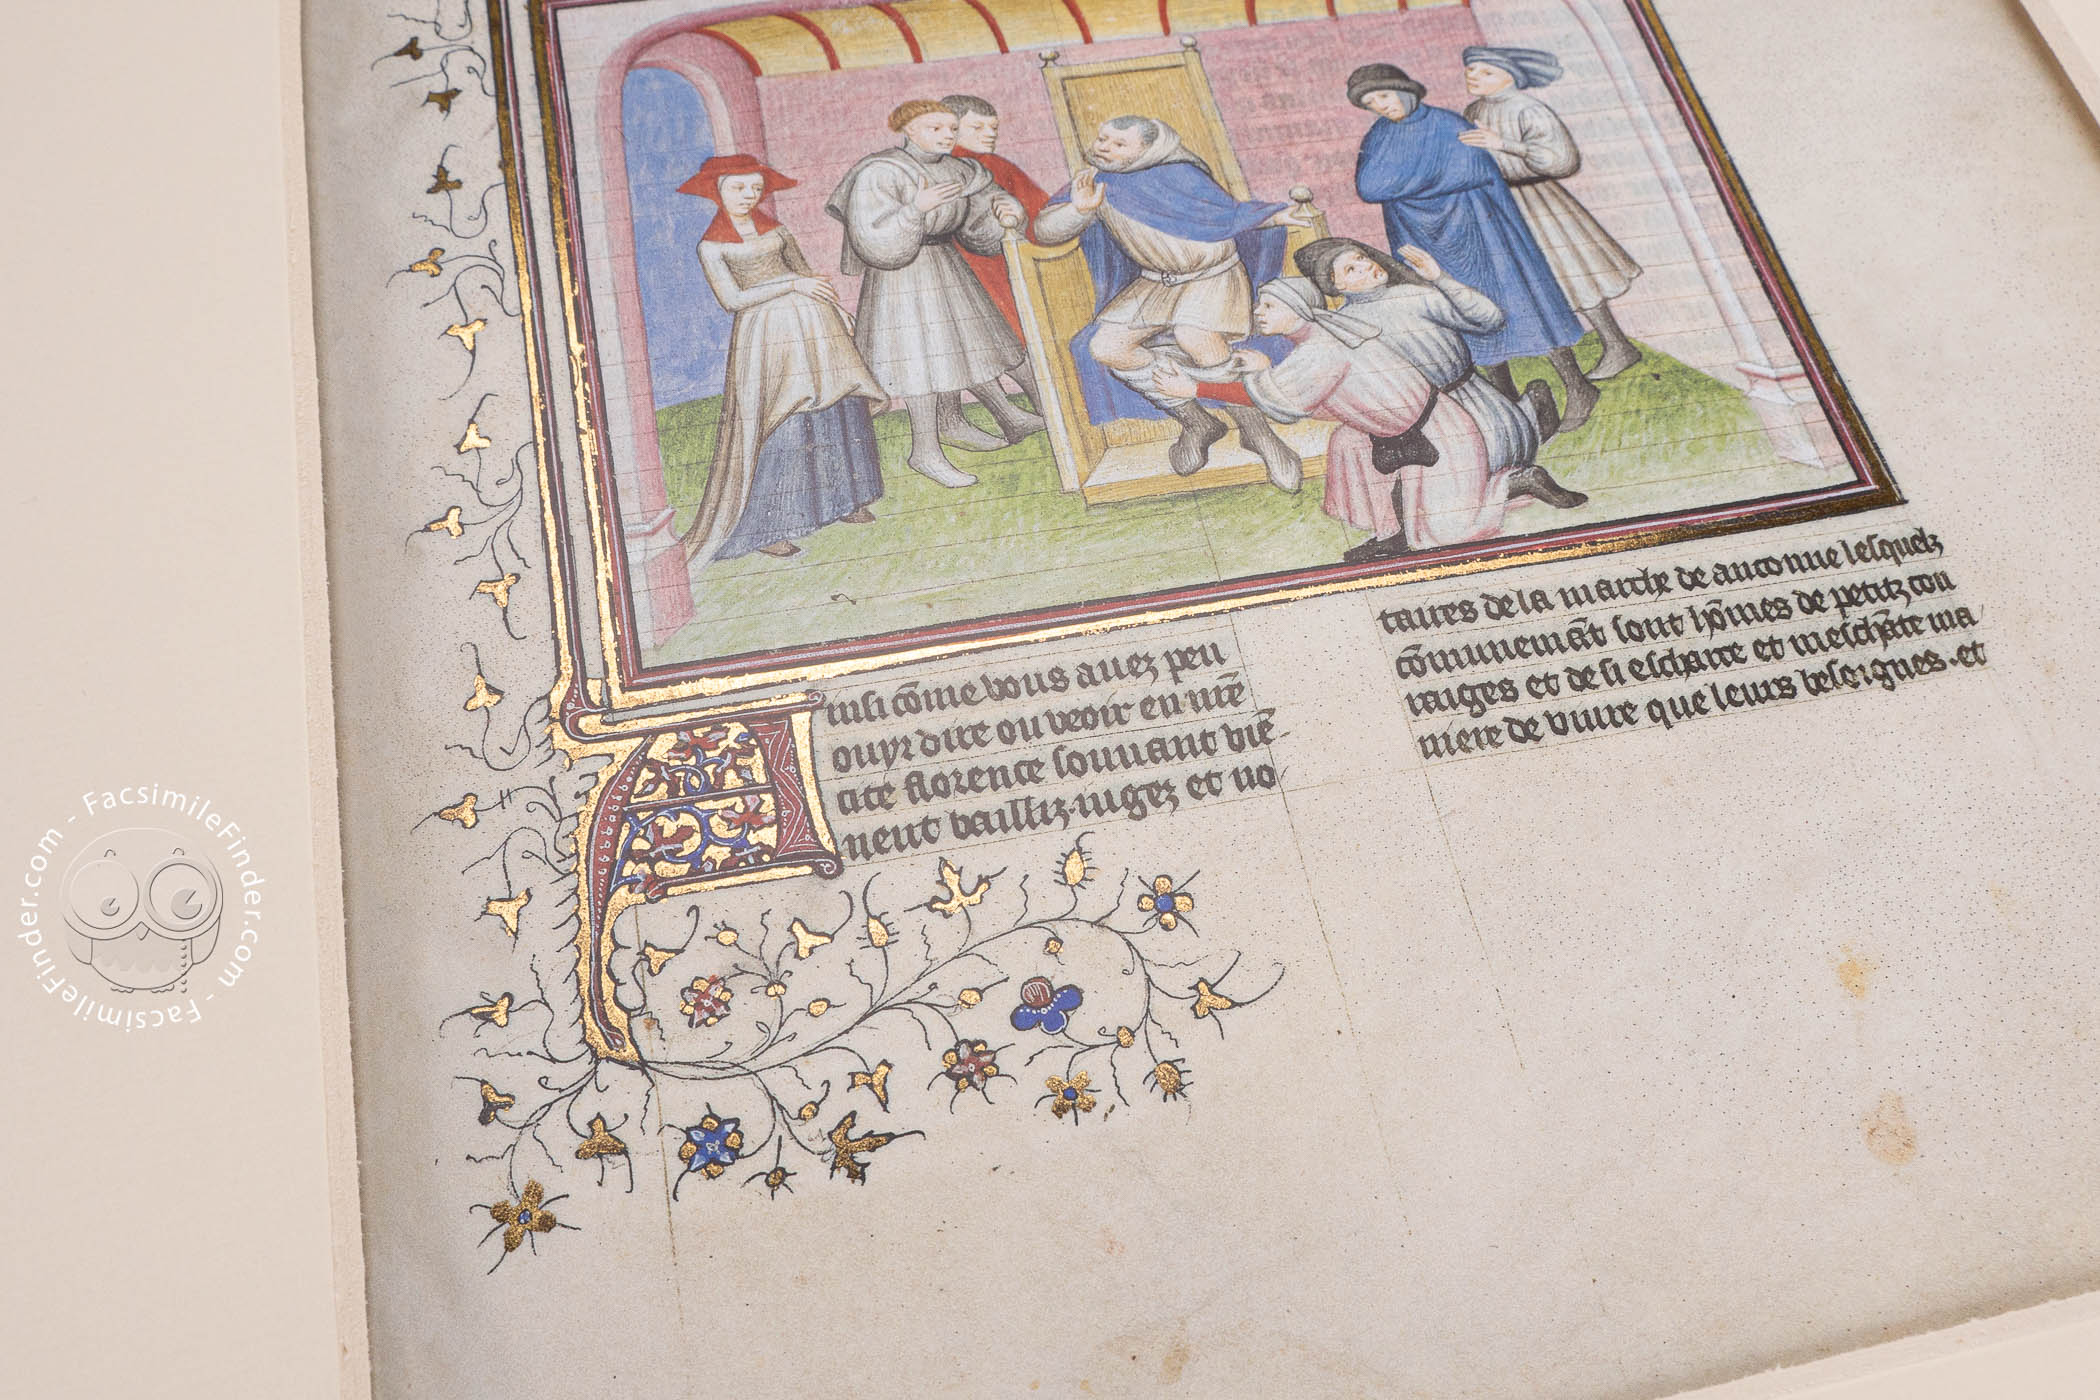 insi cōme vous avez peu
ouyr dire ou veoir en n̄re
cite florence souuant viē-
nent bailliz. iugez et no
taires de la marche de anconne lesquelz
cōmunemāt sont hōmes de petitz cou
raiges et de si escharce et meschāte ma
niere de viure que leurs besoignes. et
FacsimileFinder.com - FacsimileFinder.com - FacsimileFinder.com